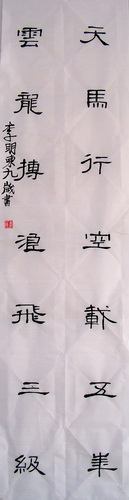 天馬行空載五車
雲龍摶浪飛三級
李明東九歲書